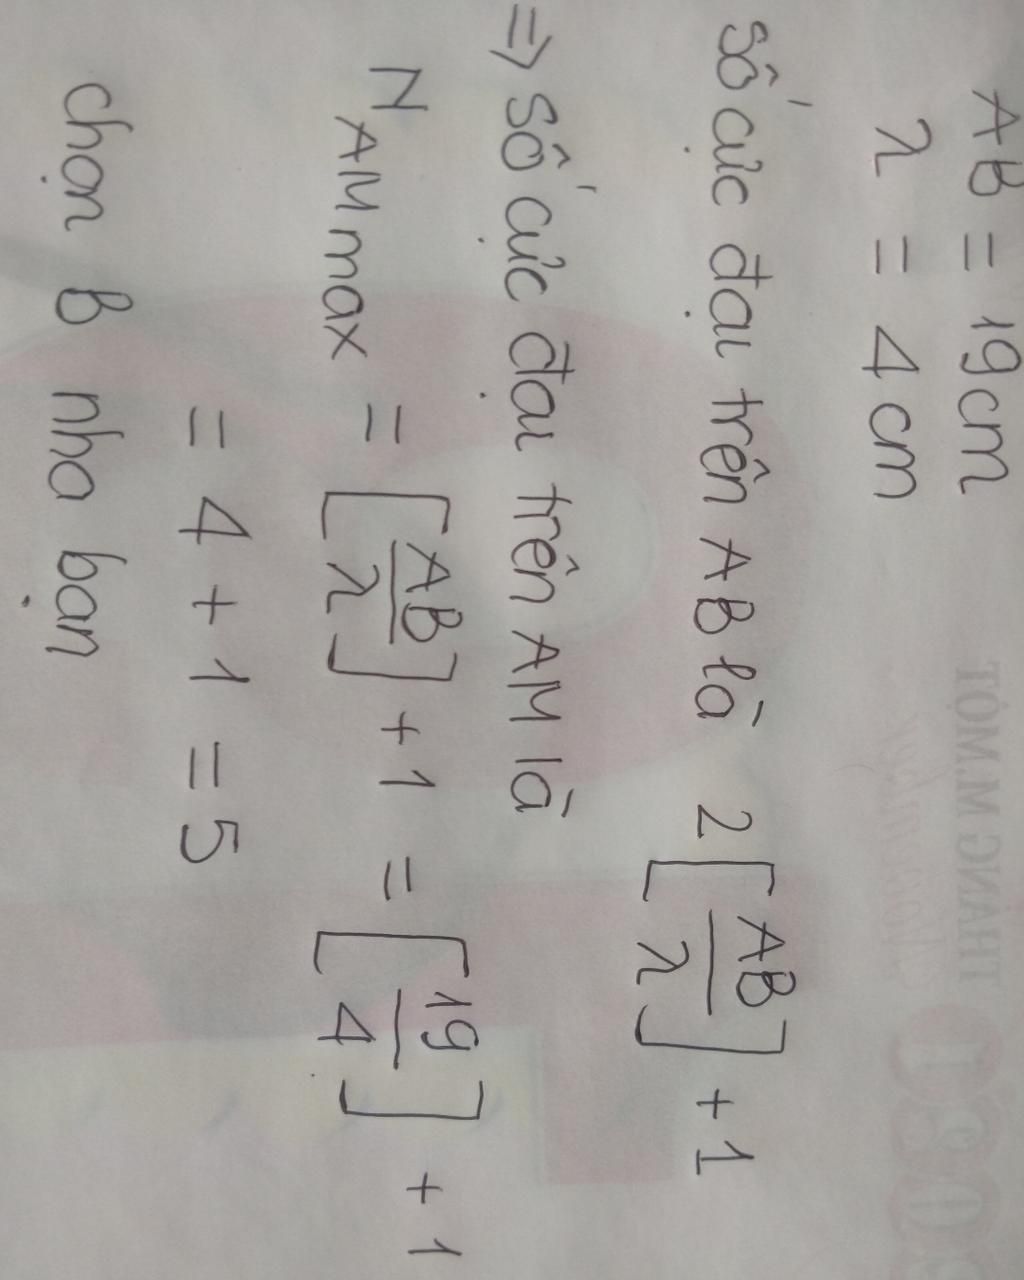 AB = 19cm
λ = 4cm
số cực đại trên AB là 2[AB/λ] + 1
=> số cực đại trên AM là
N AM max = [AB/λ] + 1 = [19/4] + 1
= 4 + 1 = 5
chọn B nha bạn
THÁNG M.MỘT